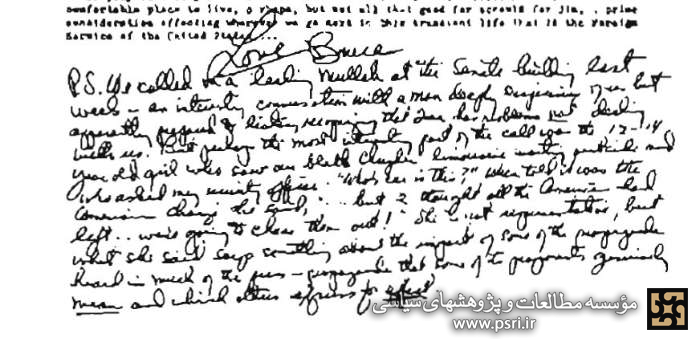 comfortable place to live, perhaps, but not all that good for schools for Jim, a prime
consideration affecting wherever we go next in this transient life that is the Foreign
Service of the United States...
Love Bruce
P.S. We called on a leading Mullah at the Senate building last
week – an interesting conversation with a man deeply suspicious of us but
apparently prepared to listen, recognizing that Iran has problems not dealing
with us. But perhaps the most interesting part of the call was the 12-14
year old girl who saw our black Chrysler limousine waiting outside and
who asked my security officer. "Who's car is this?" When told it was the
American Chargé she said, "... but I thought all the Americans had
left.. we're going to chase them out!" She is not representative, but
what she said says something about the impact of some of the propaganda
heard in much of the press – propaganda that some of the proponents genuinely
mean and which others express for effect
مؤسسه مطالعات و پژوهشهای سیاسی
www.psri.ir